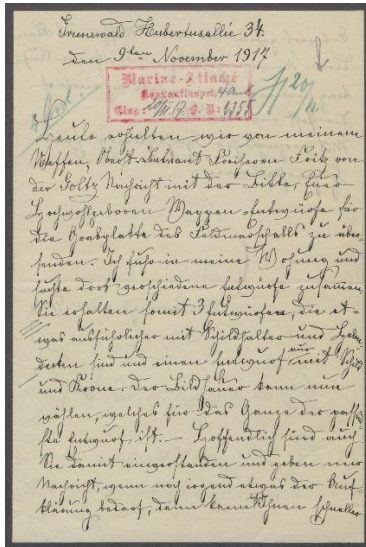 Grunewald Hubertusallée 34.
den 9ten November 1917
Marine-Attaché
Konstantinopel.
Heute erhielten wir von meinem
Neffen, Oberst-Lieutnant Freiherrn Fritz von
der Goltz Nachricht mit der Bitte, Euer
Hochwohlgeboren Wappen-Entwürfe für
die Grabplatte des Feldmarschalls zu über-
senden. Ich fuhr in meine Wohnung und
suchte dort verschiedene Entwürfe zusammen.
Sie erhalten somit 3 Entwürfe, die et-
was ausführlicher mit Schildhalter und Helm-
decken sind und einen Entwurf nur mit Schild
und Krone. Der Bildhauer kann nun
wählen, welches für das Ganze der passend-
ste Entwurf ist. — Hoffentlich sind auch
Sie damit einverstanden und geben mir
Nachricht, wenn noch irgend etwas der Auf-
klärung bedarf, dann kann Ihnen schneller